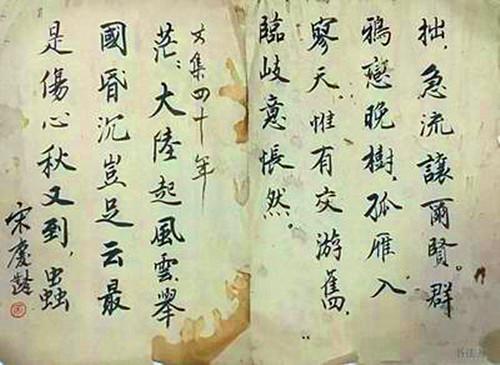 拙，急流讓爾賢。群
鴉戀晚樹，孤雁入
寥天惟有交游舊，
臨岐意悵然。
文集四十年
茫〻大陸起風雲舉
國昏沉豈足云最
是傷心秋又到，蟲
宋慶齡